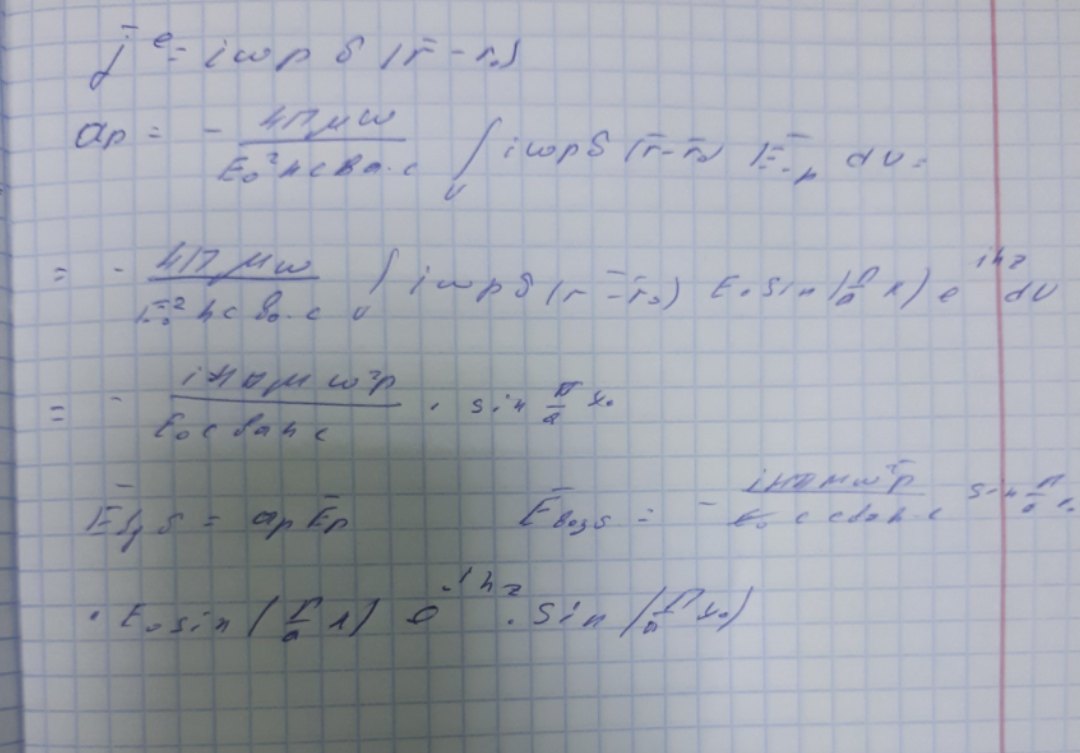 j̄ᵉ = iωp δ (r̄ - r₀)
aₚ = - 4πμω / E₀² h c b a · c ∫ᵥ iωpδ (r̄ - r̄₀) Ē₋ₚ dv =
= - 4πμω / E₀² h c b a · c ∫ᵥ iωpδ (r̄ - r̄₀) E₀ sin (π/a x) e^{ihz} dv
= - i4πμω²p / E₀ c b a h c · sin π/a x₀
Ē = aₚ Ēₚ Ē возб = - i4πμω²p̄ / E₀ c b a h c sin π/a x₀
· E₀ sin (π/a x) e^{-ihz} · sin (π/a x₀)